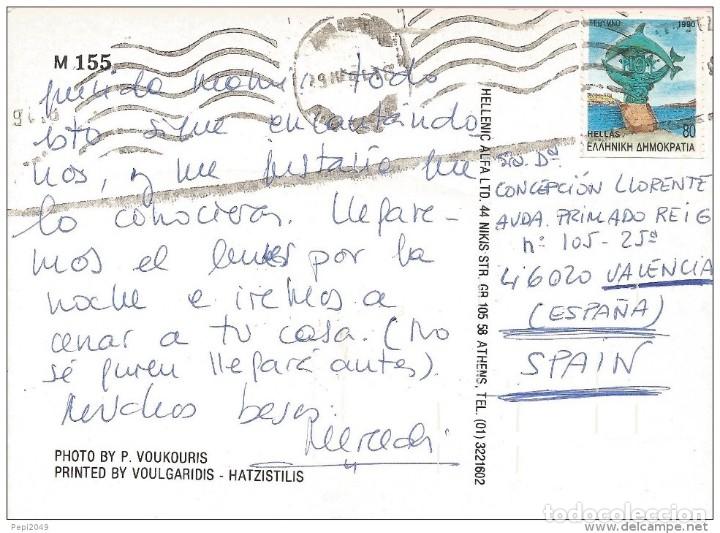 M 155
querida mami: todo
esto sigue encantándo
nos, y me gustaría que
lo conocieras. Llegare-
mos el lunes por la
noche e iremos a
cenar a tu casa. (No
sé quien llegará antes).
Muchos besos.
PHOTO BY P. VOUKOURIS
PRINTED BY VOULGARIDIS - HATZISTILIS
HELLENIC ALFA LTD. 44 NIKIS STR. GR 105 58 ATHENS, TEL. (01) 3221602
1990
HELLAS 80
ΕΛΛΗΝΙΚΗ ΔΗΜΟΚΡΑΤΙΑ
Dª
CONCEPCIÓN LLORENTE
AVDA. PRIMADO REIG
nº 105-25ª
46020 VALENCIA
(ESPAÑA)
SPAIN
todocoleccion
Pepi2049
delcampe.net